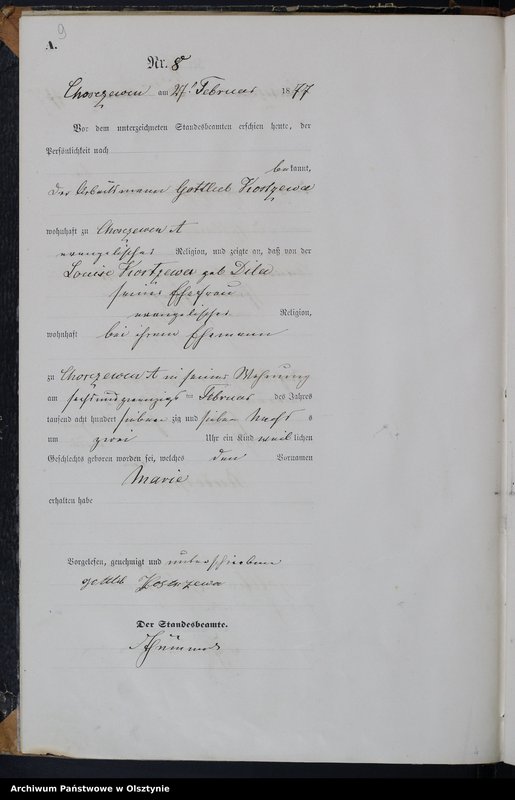 9
A.
Nr. 8
Chorczewen am 27. Februar 1877
Vor dem unterzeichneten Standesbeamten erschien heute, der
Persönlichkeit nach
bekannt,
der Arbeitsmann Gottlieb Kostzewa
wohnhaft zu Chorczewen A
evangelischer Religion, und zeigte an, daß von der
Louise Kostzewa geb Dila
seiner Ehefrau
evangelischer Religion,
wohnhaft bei ihrem Ehemann
zu Chorczewen A in seiner Wohnung
am sechsundzwanzigsten Februar des Jahres
tausend acht hundert siebenzig und sieben Nachts
um zwei Uhr ein Kind weiblichen
Geschlechts geboren worden sei, welches den Vornamen
Marie
erhalten habe
Vorgelesen, genehmigt und unterschrieben
gottlib Kostrzewa
Der Standesbeamte.
Archiwum Państwowe w Olsztynie